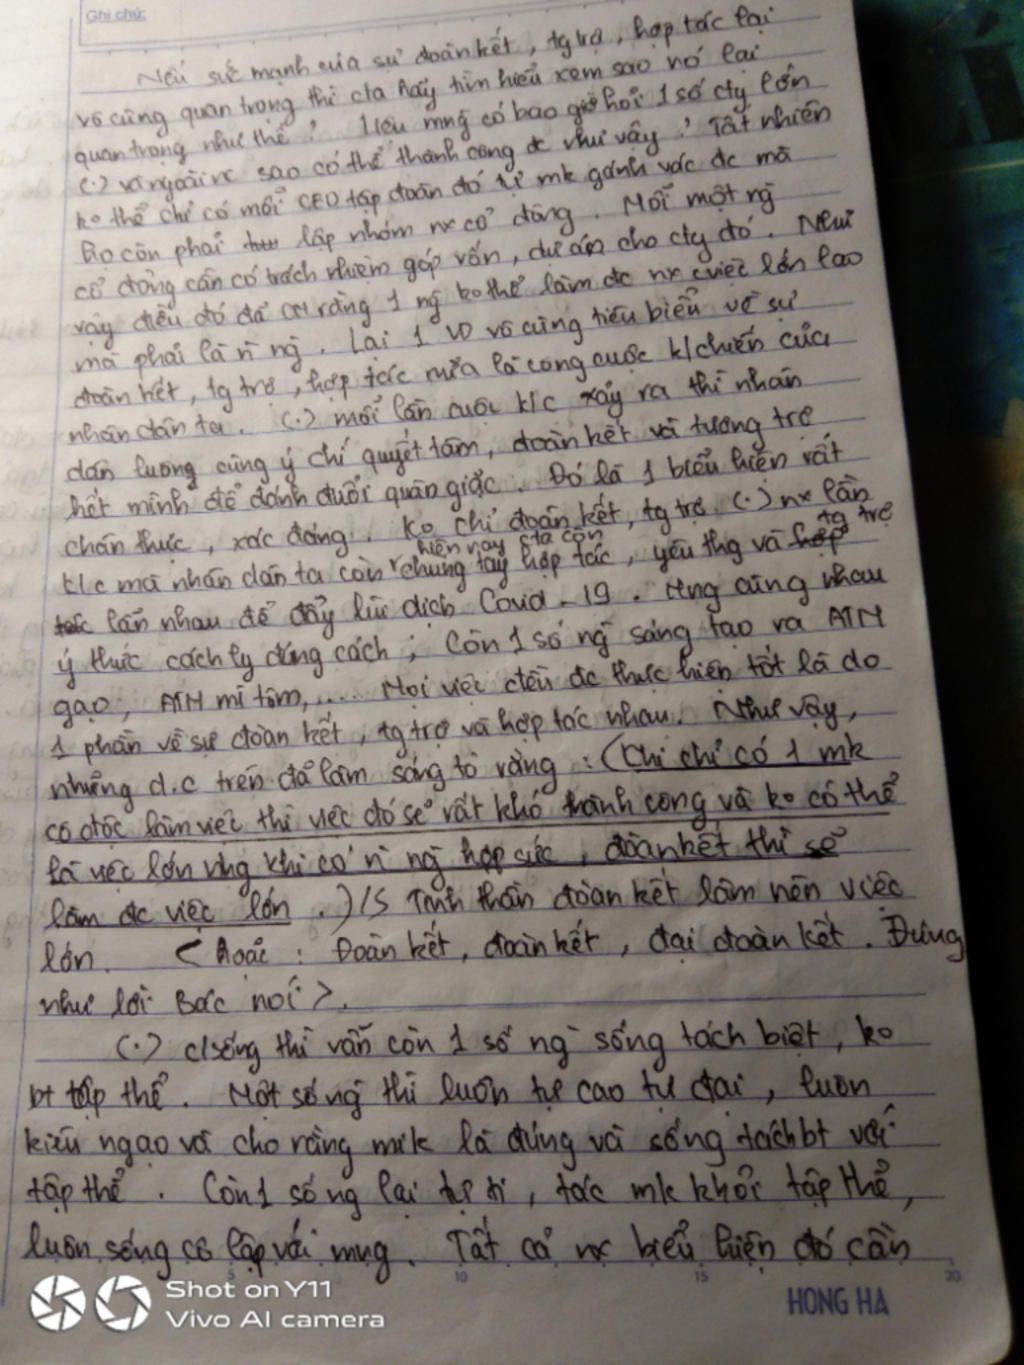 Ghi chú:
Nếu sức mạnh của sự đoàn kết, tg trợ, hợp tác lại
vô cùng quan trọng thì cta hãy tìm hiểu xem sao nó lại
quan trọng như thế? Liệu mng có bao giờ hỏi 1 số cty lớn
(.) và ngoài nc sao có thể thành công đc như vậy? Tất nhiên
ko thể chỉ có mỗi CEO tập đoàn đó tự mk gánh vác đc mà
họ còn phải lập nhóm nx cổ đông. Mỗi một ng
cổ đông cần có trách nhiệm góp vốn, dự án cho cty đó. Như
vậy điều đó đã CM rằng 1 ng ko thể làm đc nx việc lớn lao
mà phải là n ng. Lại 1 VD vô cùng tiêu biểu về sự
đoàn kết, tg trợ, hợp tác nữa là công cuộc k/chiến của
nhân dân ta. (.) mỗi lần cuộc k/c xảy ra thì nhân
dân luông cùng ý chí quyết tâm, đoàn kết và tương trợ
hết mình để đánh đuổi quân giặc. Đó là 1 biểu hiện rất
chân thực, xác đáng. Ko chỉ đoàn kết, tg trợ (.) nx lần
k/c mà nhân dân ta còn hiện nay cta còn chung tay hợp tác, yêu thg và tg trợ
lẫn nhau để đẩy lùi dịch Covid-19. Mng cùng nhau
ý thức cách ly đúng cách; Còn 1 số ng sáng tạo ra ATM
gạo, ATM mì tôm,.... Mọi việc đều đc thực hiện tốt là do
1 phần về sự đoàn kết, tg trợ và hợp tác nhau. Như vậy,
những d.c trên đã làm sáng tỏ rằng: (Khi chỉ có 1 mk
cô độc làm việc thì việc đó sẽ rất khó thành công và ko có thể
là việc lớn nhg khi có n ng hợp sức, đoàn kết thì sẽ
làm đc việc lớn.)/S Tinh thần đoàn kết làm nên việc
lớn. < hoặc: Đoàn kết, đoàn kết, đại đoàn kết. Đúng
như lời Bác nói >.
(.) c/sống thì vẫn còn 1 số ng sống tách biệt, ko
bt tập thể. Một số ng thì luôn tự cao tự đại, luôn
kiêu ngạo và cho rằng mk là đúng và sống tách bt với
tập thể. Còn 1 số ng lại tự ti, tác mk khỏi tập thể,
luôn sống cô lập với mng. Tất cả nx biểu hiện đó cần
5 10 15 20
HONG HA
Shot on Y11
Vivo AI camera